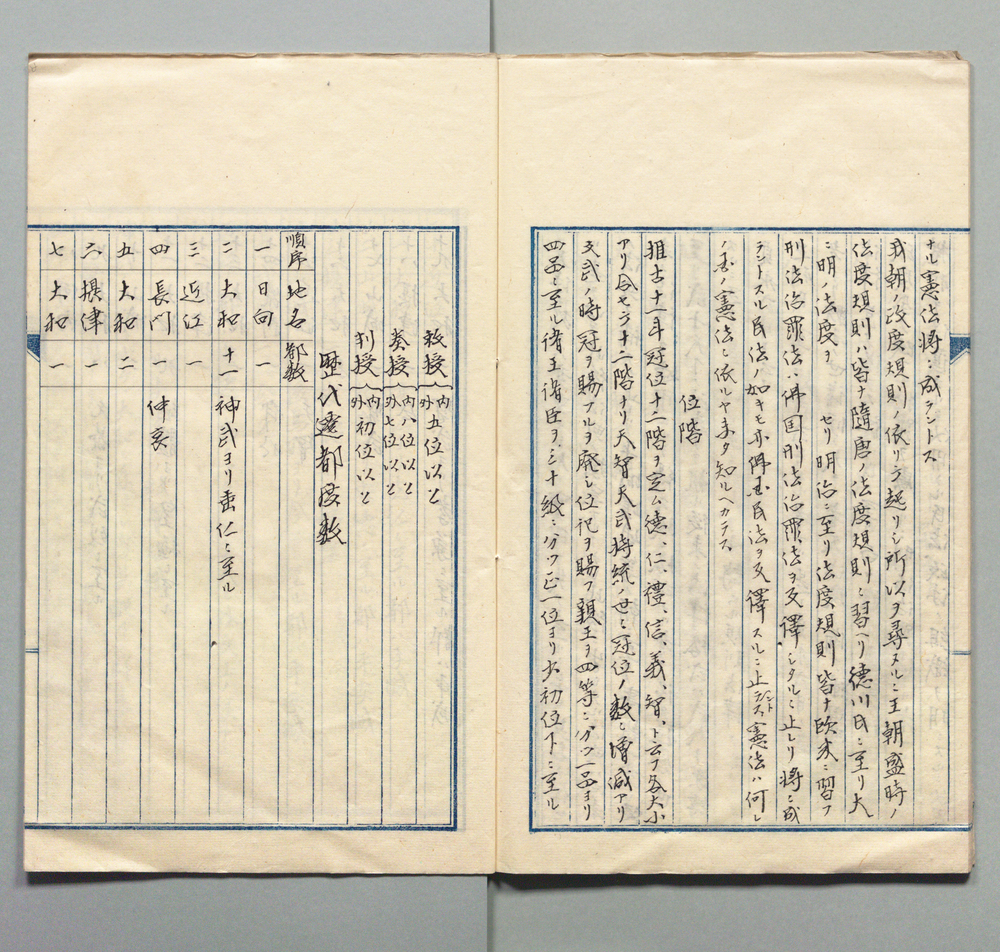 ナル憲法将ニ成ラントス
我朝ノ政度規則ノ依リテ起リシ所以ヲ尋ヌルニ王朝盛時ノ
法度規則ハ皆ナ隨唐ノ法度規則ニ習ヘリ徳川氏ニ至リ大
ニ明ノ法度ヲ セリ明治ニ至リ法度規則皆ナ欧米ニ習フ
刑法治罪法ハ佛国刑法治罪法ヲ反譯シタルニ止レリ将ニ成
ラントスル民法ノ如キモ亦佛国民法ヲ反譯スルニ止ラントス憲法ハ何レ
ノ国ノ憲法ニ依ルヤ未タ知ルヘカラス
位階
推古十一年冠位十二階ヲ定ム徳、仁、禮、信、義、智、ト云フ各大小
アリ合セテ十二階ナリ天智天武持統ノ世ニ冠位ノ数ニ増減アリ
文武ノ時冠ヲ賜フルヲ廃シ位記ヲ賜フ親王ヲ四等ニ分ツ一品ヨリ
四品ニ至ル諸王諸臣ヲ三十級ニ分ツ正一位ヨリ少初位下ニ至ル
敕授 内外五位以上
奏授 内八位以上 外七位以上
判授 内外初位以上
歴代遷都度数
順序 地名 都数
一 日向 一
二 大和 十一 神武ヨリ垂仁ニ至ル
三 近江 一
四 長門 一 仲哀
五 大和 二
六 摂津 一
七 大和 一